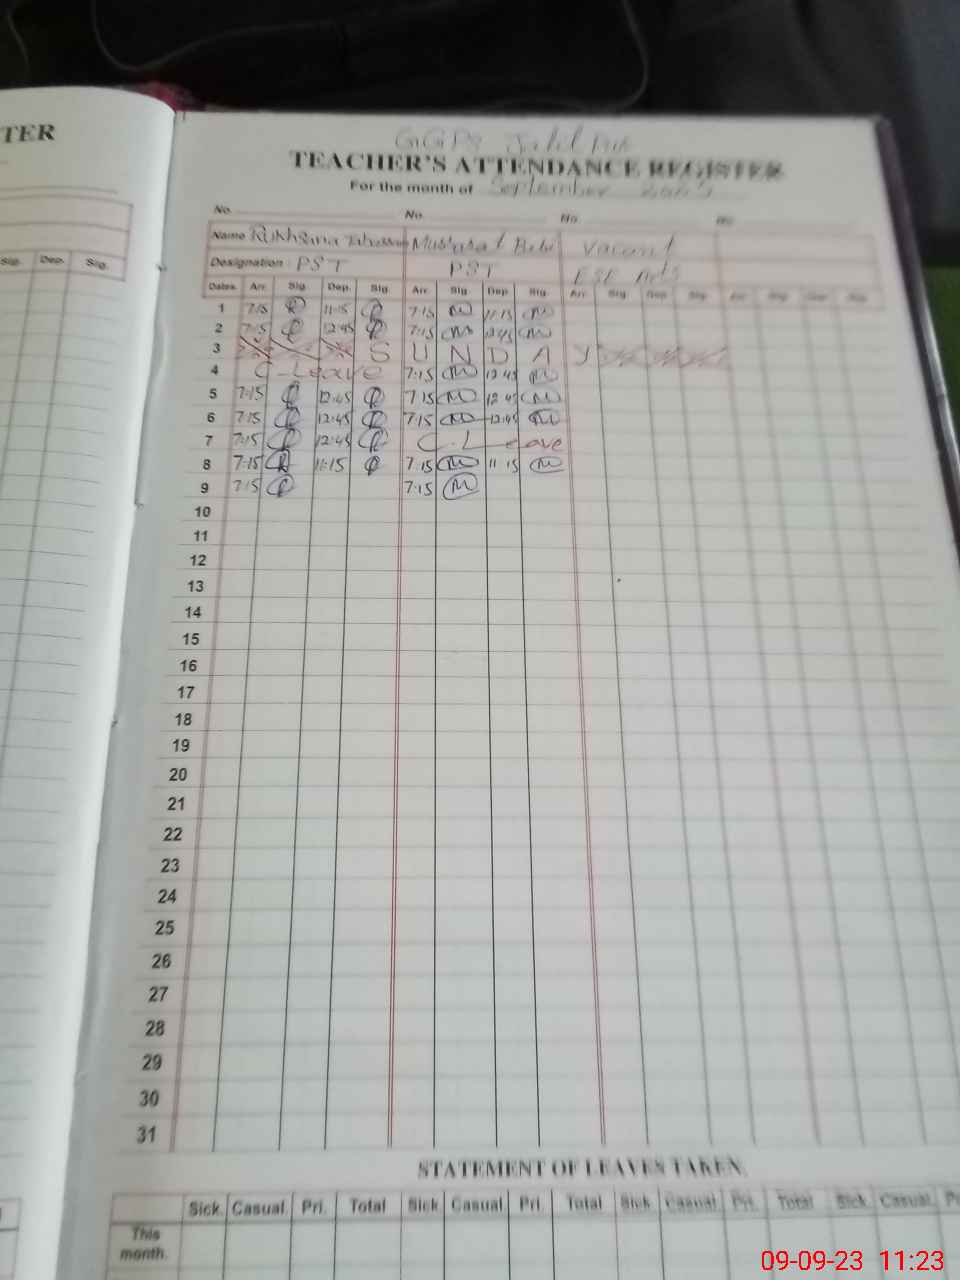 TER
Sig. Dep. Sig.
GGPS
TEACHER'S ATTENDANCE REGISTER
For the month of September
No. No. No. No.
Name Rukhsana Bibi Vacant
Designation: PST PST ESE Arts
Dates. Arr. Sig. Dep. Sig. Arr. Sig. Dep. Sig. Arr. Sig. Dep. Sig. Arr. Sig. Dep. Sig.
1 7:15 R 11:15 R 7:15 M 11:15 M
2 7:15 R 12:45 R 7:15 M 12:45 M
3 S U N D A Y
4 C Leave 7:15 M 12:45 M
5 7:15 R 12:45 R 7:15 M 12:45 M
6 7:15 R 12:45 R 7:15 M 12:45 M
7 7:15 R 12:45 R C. Leave
8 7:15 R 11:15 R 7:15 M 11:15 M
9 7:15 R 7:15 M
10
11
12
13
14
15
16
17
18
19
20
21
22
23
24
25
26
27
28
29
30
31
STATEMENT OF LEAVES TAKEN.
Sick. Casual. Pri. Total Sick Casual Pri. Total Sick. Casual. Pri. Total Sick. Casual.
This
month.
09-09-23 11:23